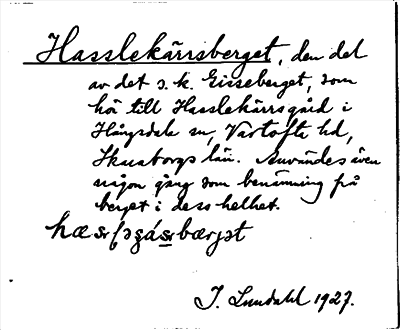 Hasslekärrsberget, den del
av det s. k. Gisseberget, som
hör till Hasslekärrsgård i
Hångsdala sn, Vartofta hd,
Skaraborgs län. Användes även
någon gång som benämning på
berget i dess helhet.
J. Lundahl 1927.